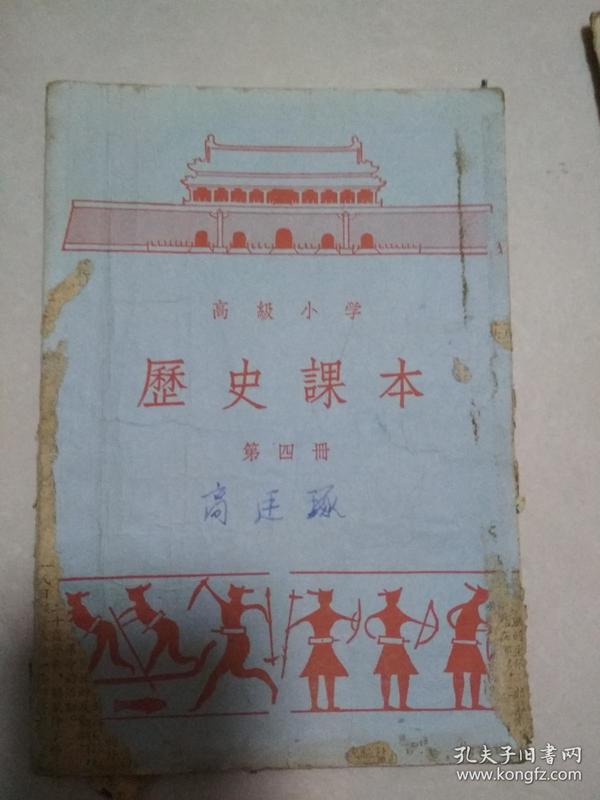 高級小学
歷史課本
第四冊
高廷琢
孔夫子旧书网
www.kongfz.com